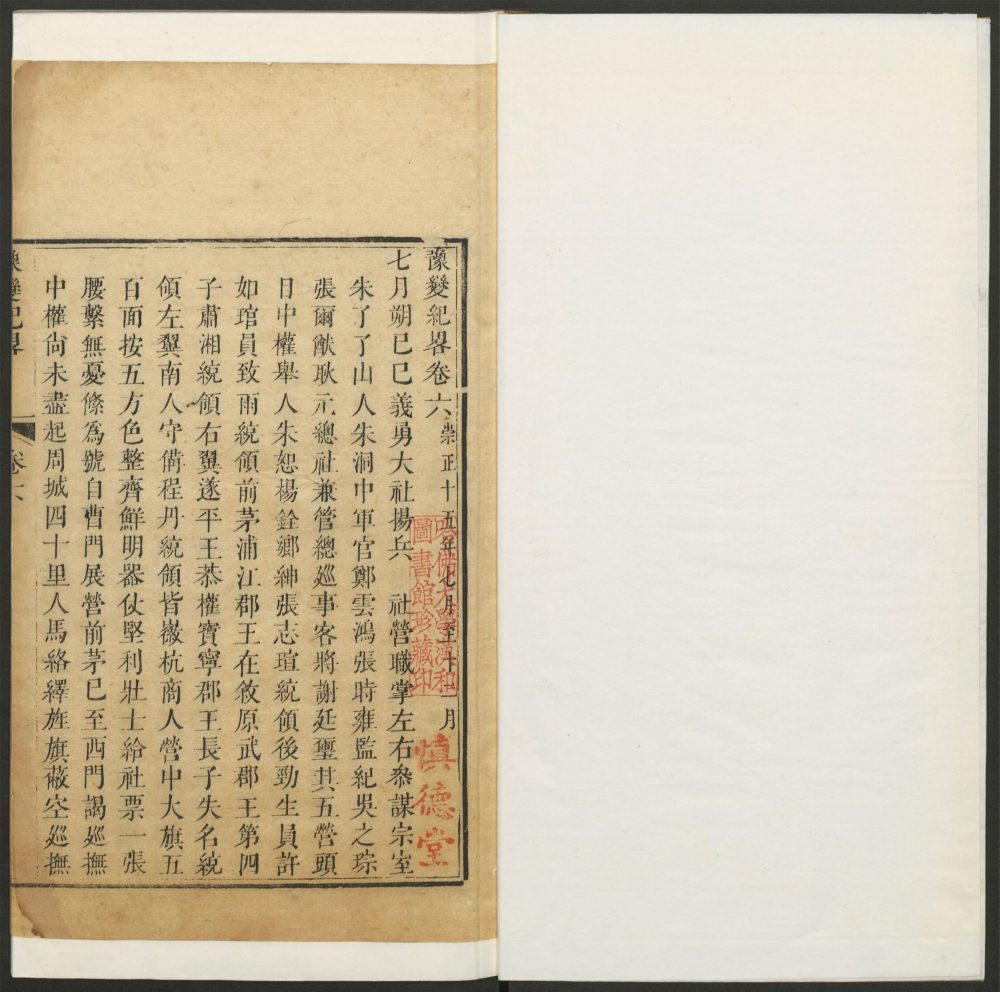 豫變紀畧卷六 崇正十五年七月至十一月
七月朔己巳義勇大社揚兵 社營職掌左右叅謀宗室
朱了了山人朱洞中軍官鄭雲鴻張時雍監紀吳之琮
張爾猷耿元總社兼管總廵事客將謝延璽其五營頭
目中權舉人朱恕楊銓鄉紳張志瑄統領後勁生員許
如琯員致雨統領前茅浦江郡王在𢽾原武郡王第四
子肅湘統領右翼遂平王恭權寶寧郡王長子失名統
領左翼南人守備程丹統領皆徽杭商人營中大旗五
百面按五方色整齊鮮明器仗堅利壯士給社票一張
腰繫無憂絛為號自曹門展營前茅已至西門謁廵撫
中權尙未盡起周城四十里人馬絡繹旌旗蔽空廵撫
豫變紀畧
卷六
哈佛大學漢和
圖書館珍藏印
慎德堂